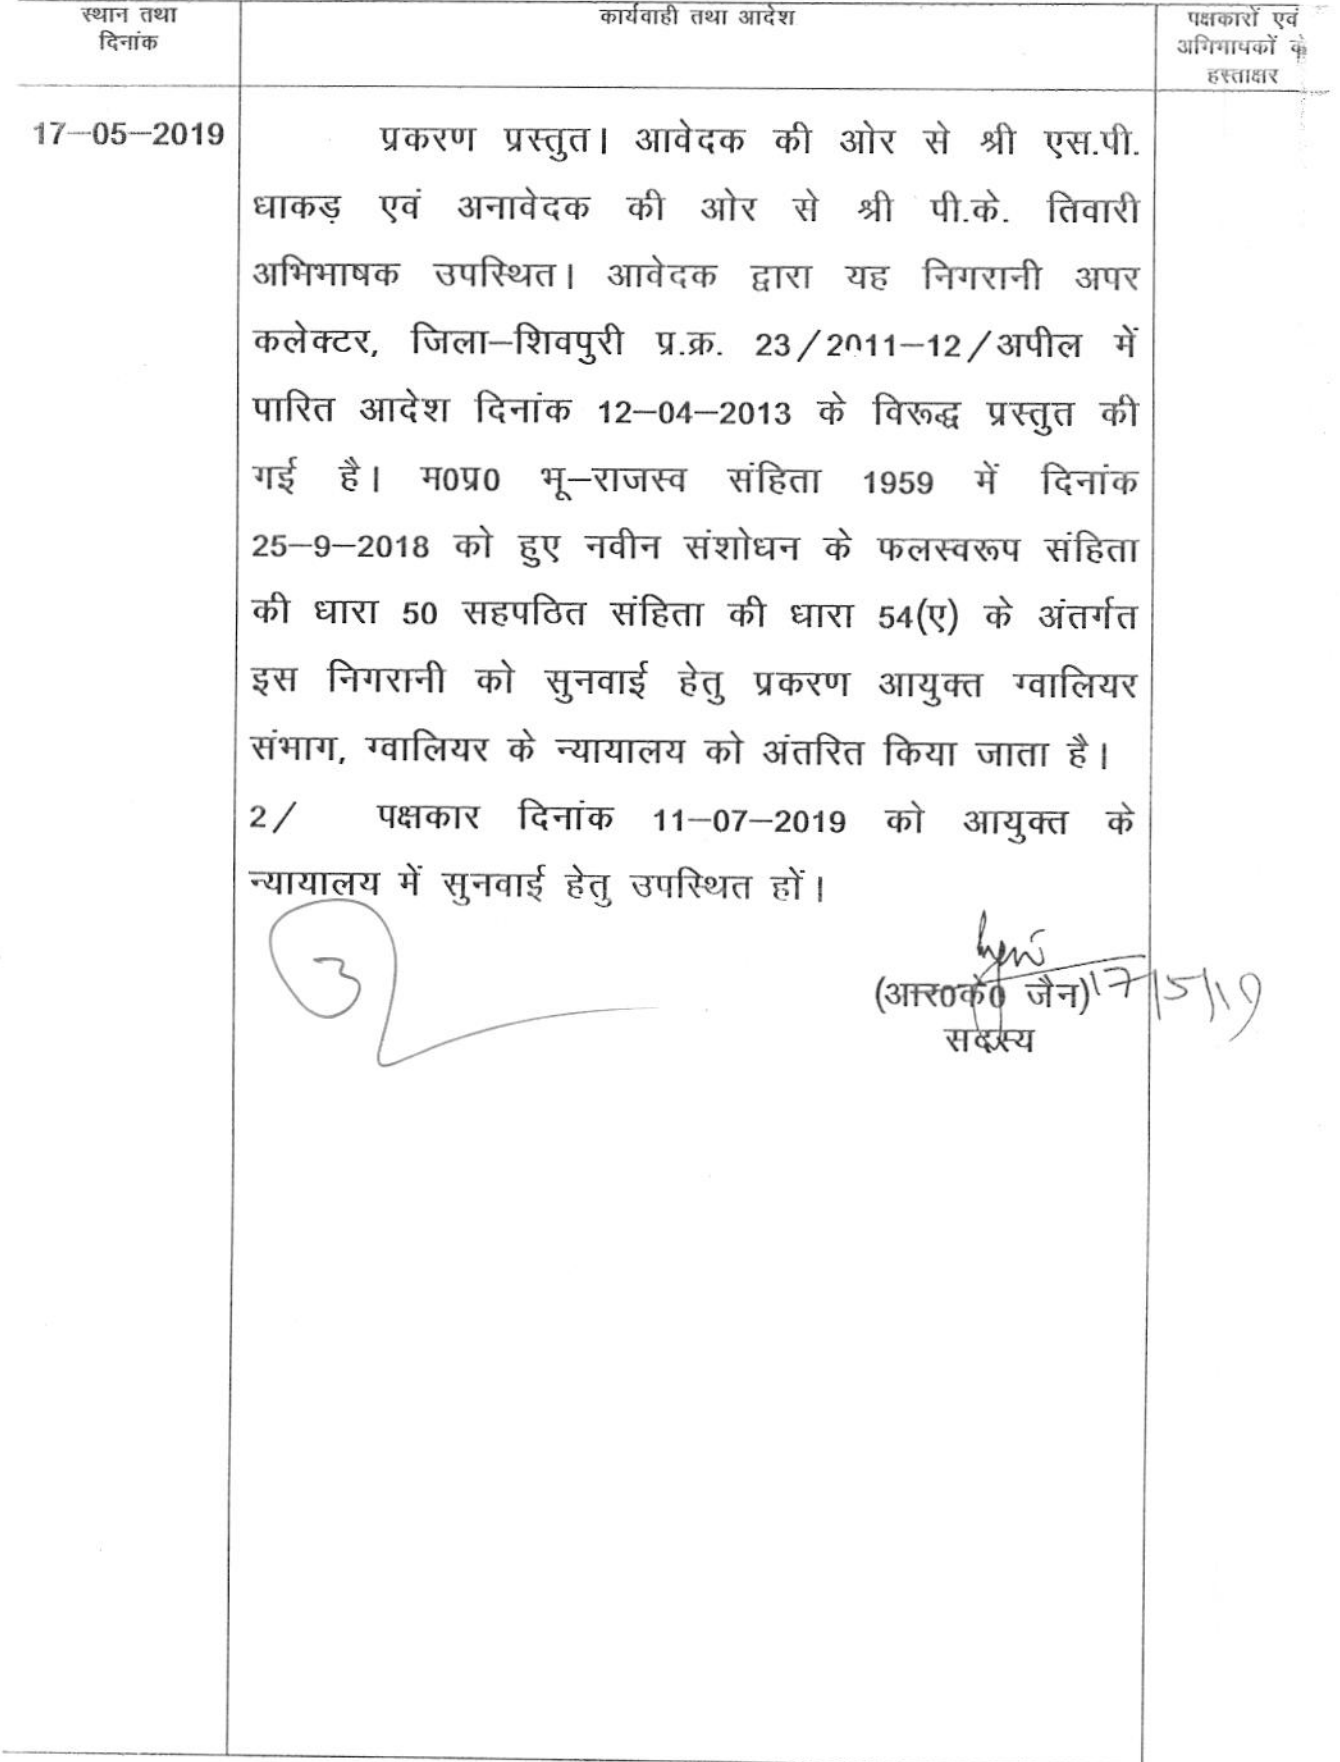 स्थान तथा
दिनांक
कार्यवाही तथा आदेश
पक्षकारों एवं
अभिभाषकों के
हस्ताक्षर
17–05–2019
प्रकरण प्रस्तुत। आवेदक की ओर से श्री एस.पी.
धाकड़ एवं अनावेदक की ओर से श्री पी.के. तिवारी
अभिभाषक उपस्थित। आवेदक द्वारा यह निगरानी अपर
कलेक्टर, जिला–शिवपुरी प्र.क्र. 23/2011–12/अपील में
पारित आदेश दिनांक 12–04–2013 के विरूद्ध प्रस्तुत की
गई है। म0प्र0 भू–राजस्व संहिता 1959 में दिनांक
25–9–2018 को हुए नवीन संशोधन के फलस्वरूप संहिता
की धारा 50 सहपठित संहिता की धारा 54(ए) के अंतर्गत
इस निगरानी को सुनवाई हेतु प्रकरण आयुक्त ग्वालियर
संभाग, ग्वालियर के न्यायालय को अंतरित किया जाता है।
2/ पक्षकार दिनांक 11–07–2019 को आयुक्त के
न्यायालय में सुनवाई हेतु उपस्थित हों।
(आर0के0 जैन) 17/5/19
सदस्य